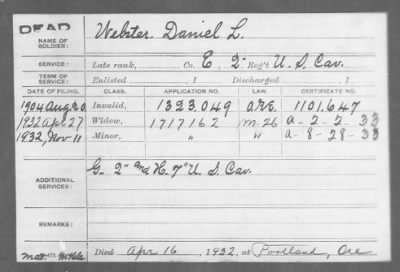 DEAD
NAME OF SOLDIER: Webster Daniel L.
SERVICE: Late rank, Co. E, 2" Reg't U. S. Cav.
TERM OF SERVICE: Enlisted , 1 Discharged , 1
DATE OF FILING. CLASS. APPLICATION NO. LAW. CERTIFICATE NO.
1904 Aug 20 Invalid, 1323,049 1101,647
1932 Apr 27 Widow, 1717162 M-26 a-2-2-33
1932, Nov 11 Minor, " " a-8-28-33
ADDITIONAL SERVICES: G. 2" and H. 7" U. S. Cav.
REMARKS:
Died Apr 16, 1932, at Portland, Ore